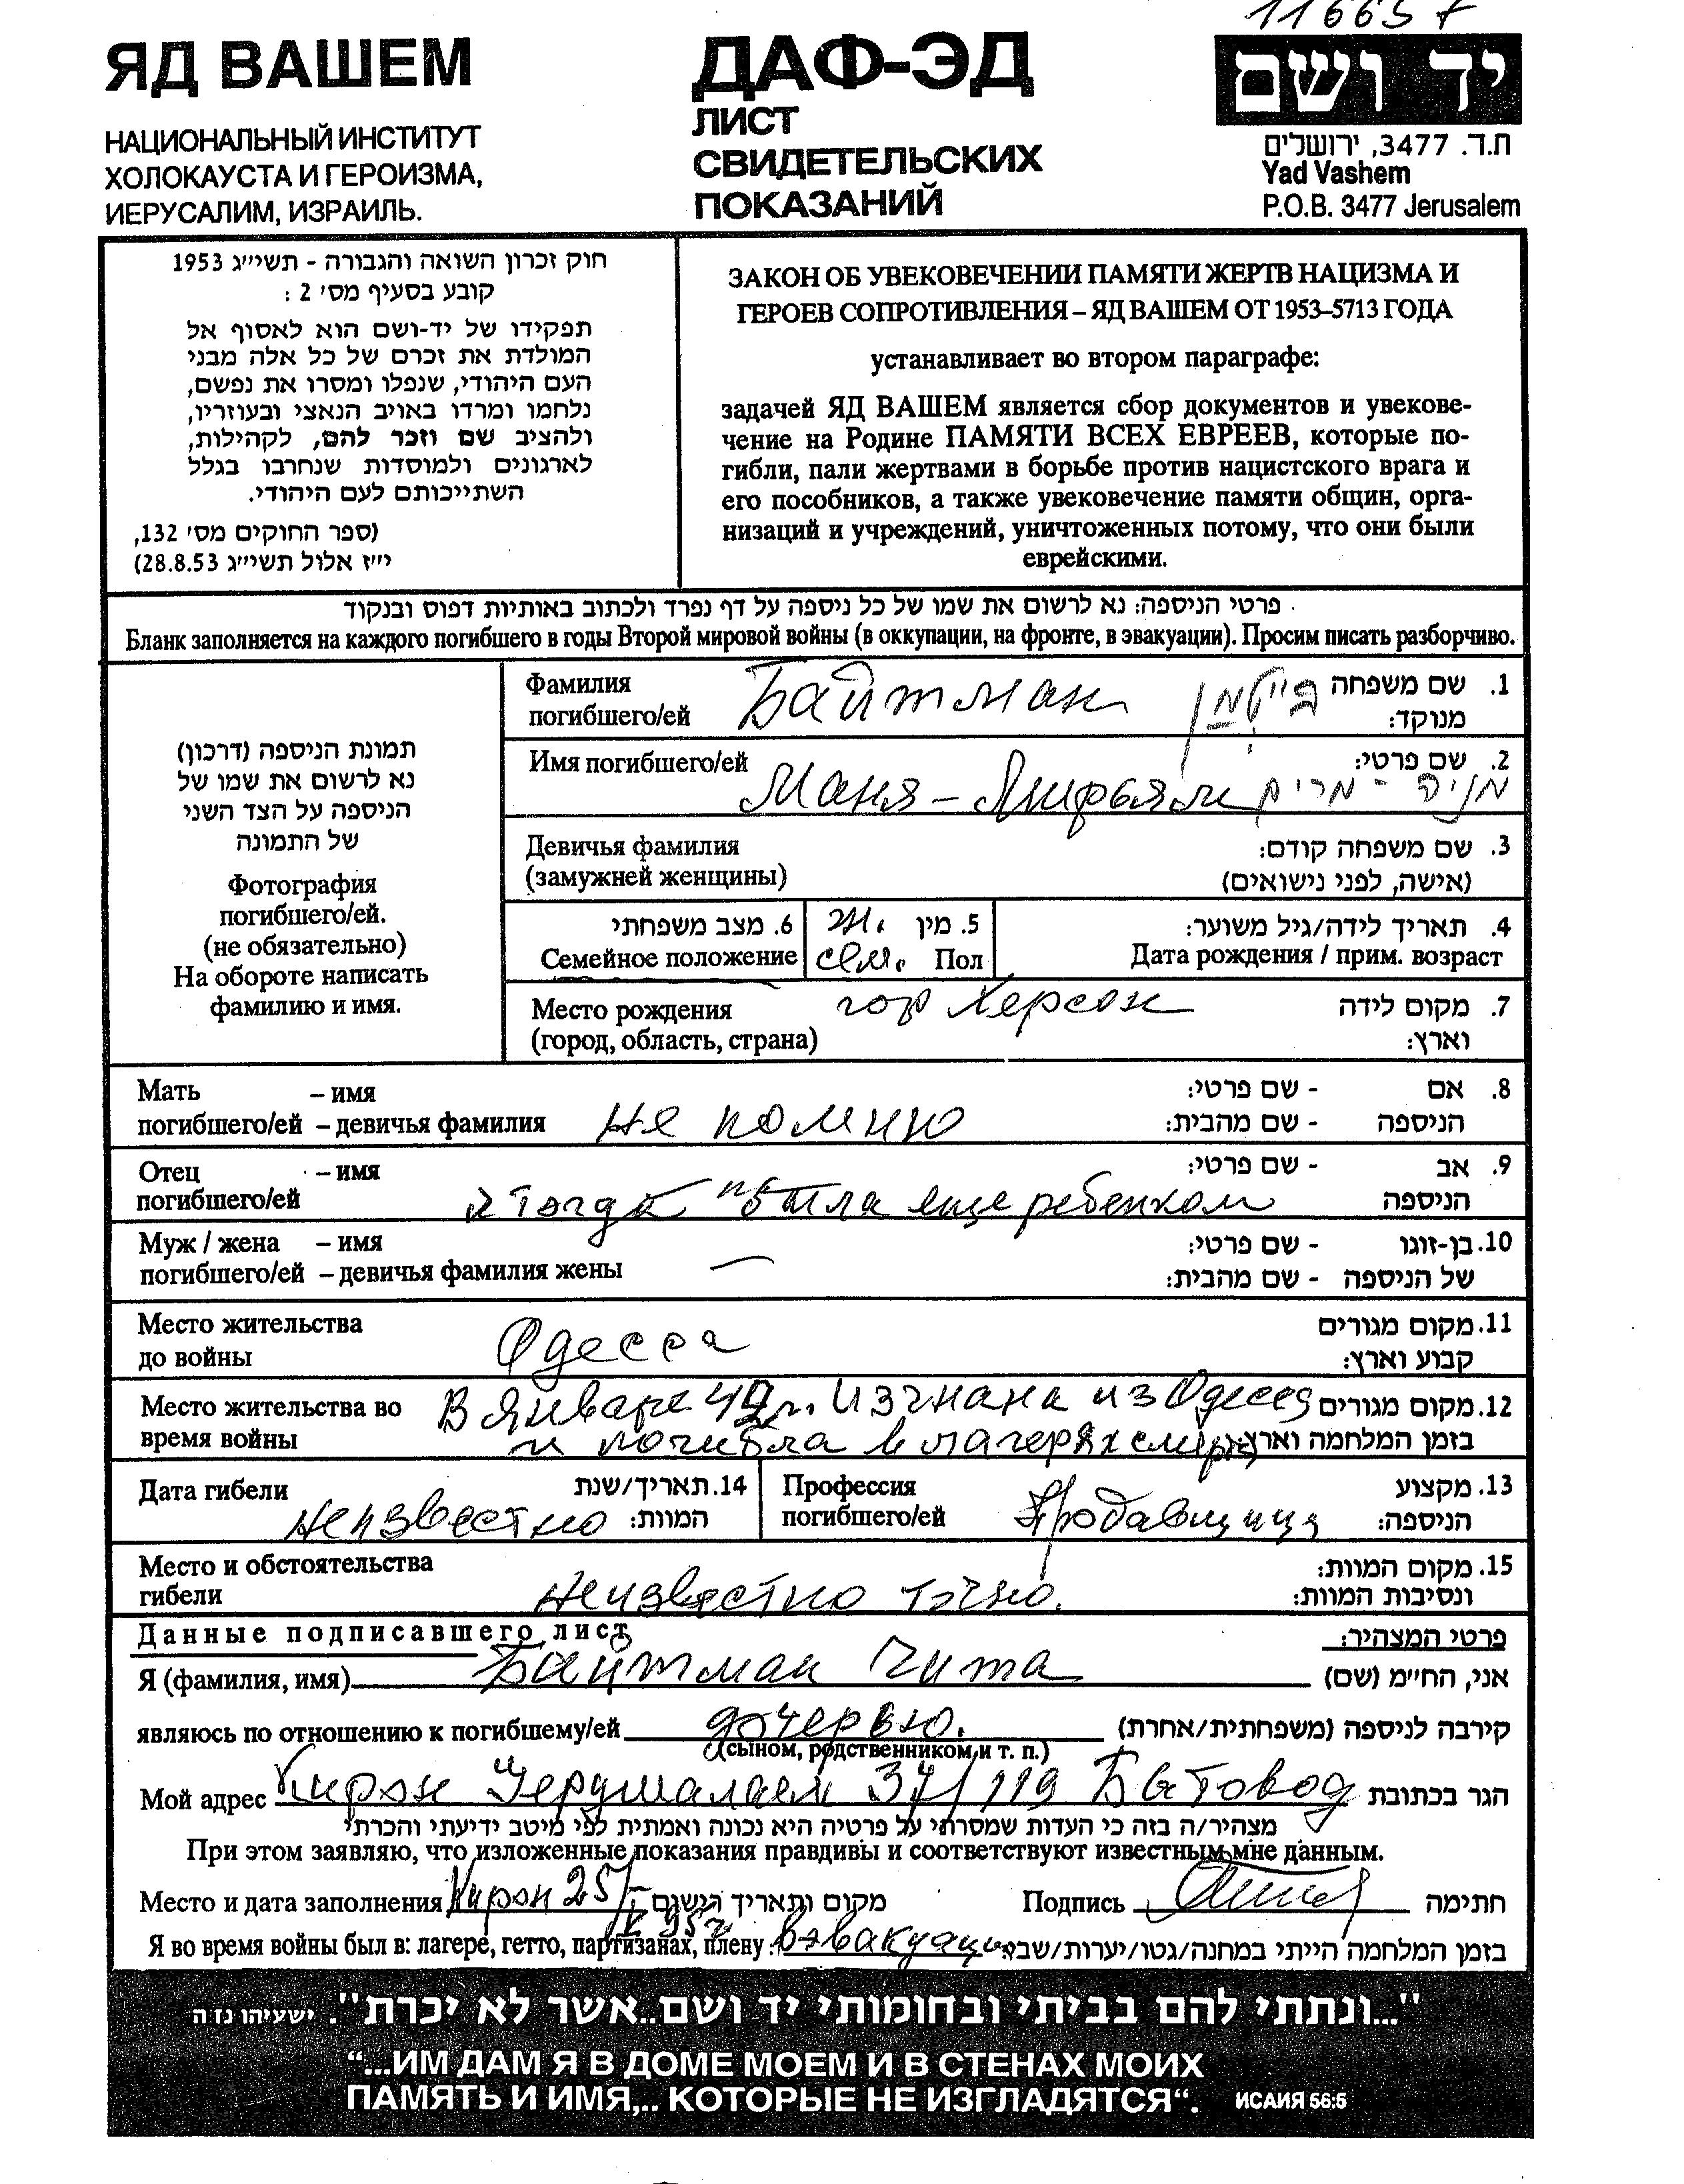 116657
ЯД ВАШЕМ
НАЦИОНАЛЬНЫЙ ИНСТИТУТ
ХОЛОКАУСТА И ГЕРОИЗМА,
ИЕРУСАЛИМ, ИЗРАИЛЬ.
ДАФ-ЭД
ЛИСТ
СВИДЕТЕЛЬСКИХ
ПОКАЗАНИЙ
יד ושם
ת.ד. 3477, ירושלים
Yad Vashem
P.O.B. 3477 Jerusalem
חוק זכרון השואה והגבורה - תשי״ג 1953
קובע בסעיף מס׳ 2 :
תפקידו של יד-ושם הוא לאסוף אל
המולדת את זכרם של כל אלה מבני
העם היהודי, שנפלו ומסרו את נפשם,
נלחמו ומרדו באויב הנאצי ובעוזריו,
ולהציב שם וזכר להם, לקהילות,
לארגונים ולמוסדות שנחרבו בגלל
השתייכותם לעם היהודי.
(ספר החוקים מס׳ 132,
י״ז אלול תשי״ג 28.8.53)
ЗАКОН ОБ УВЕКОВЕЧЕНИИ ПАМЯТИ ЖЕРТВ НАЦИЗМА И
ГЕРОЕВ СОПРОТИВЛЕНИЯ – ЯД ВАШЕМ ОТ 1953–5713 ГОДА
устанавливает во втором параграфе:
задачей ЯД ВАШЕМ является сбор документов и увекове-
чение на Родине ПАМЯТИ ВСЕХ ЕВРЕЕВ, которые по-
гибли, пали жертвами в борьбе против нацистского врага и
его пособников, а также увековечение памяти общин, орга-
низаций и учреждений, уничтоженных потому, что они были
еврейскими.
פרטי הניספה: נא לרשום את שמו של כל ניספה על דף נפרד ולכתוב באותיות דפוס ובנקוד
Бланк заполняется на каждого погибшего в годы Второй мировой войны (в оккупации, на фронте, в эвакуации). Просим писать разборчиво.
תמונת הניספה (דרכון)
נא לרשום את שמו של
הניספה על הצד השני
של התמונה
Фотография
погибшего/ей.
(не обязательно)
На обороте написать
фамилию и имя.
Фамилия
погибшего/ей Байтман בייטמן
1. שם משפחה
מנוקד:
Имя погибшего/ей 2. שם פרטי:
Маня – מניה - מרים
Девичья фамилия 3. שם משפחה קודם:
(замужней женщины) (אישה, לפני נישואים)
6. מצב משפחתי
Семейное положение
5. מין ж.
сем. Пол
4. תאריך לידה/גיל משוער:
Дата рождения / прим. возраст
Место рождения гор Херсон 7. מקום לידה
(город, область, страна) וארץ:
Мать – имя 8. אם - שם פרטי:
погибшего/ей – девичья фамилия не помню הניספה - שם מהבית:
Отец – имя 9. אב - שם פרטי:
погибшего/ей я тогда была еще ребенком הניספה
Муж / жена – имя 10. בן-זוגו - שם פרטי:
погибшего/ей – девичья фамилия жены — של הניספה - שם מהבית:
Место жительства 11. מקום מגורים
до войны Одесса קבוע וארץ:
Место жительства во В Январе 42 г. Изгнана из Одессы 12. מקום מגורים
время войны и погибла в лагерях смерти בזמן המלחמה וארץ:
Дата гибели 14. תאריך/שנת
неизвестно המוות:
Профессия 13. מקצוע
погибшего/ей Продавщица הניספה:
Место и обстоятельства 15. מקום המוות:
гибели неизвестно точно. ונסיבות המוות:
Данные подписавшего лист פרטי המצהיר:
Я (фамилия, имя) Байтман Чита אני, החי״מ (שם)
являюсь по отношению к погибшему/ей дочерью. קירבה לניספה (משפחתית/אחרת)
(сыном, родственником и т. п.)
Мой адрес Кирон Иерушалаем 37/119 הגר בכתובת
מצהיר/ה בזה כי העדות שמסרתי על פרטיה היא נכונה ואמתית לפי מיטב ידיעתי והכרתי
При этом заявляю, что изложенные показания правдивы и соответствуют известным мне данным.
Место и дата заполнения Кирон 25/ מקום ותאריך הישום Подпись חתימה
95г
Я во время войны был в: лагере, гетто, партизанах, плену: в эвакуации בזמן המלחמה הייתי במחנה/גטו/יערות/שבי:
"...ונתתי להם בביתי ובחומותי יד ושם..אשר לא יכרת". ישעיהו נו ה
“...ИМ ДАМ Я В ДОМЕ МОЕМ И В СТЕНАХ МОИХ
ПАМЯТЬ И ИМЯ,.. КОТОРЫЕ НЕ ИЗГЛАДЯТСЯ“. ИСАИЯ 56:5